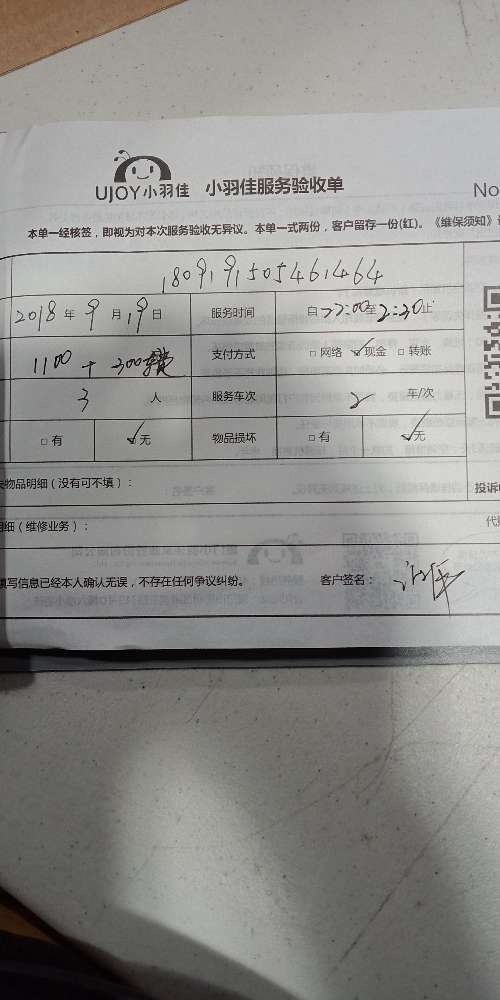 UJOY小羽佳 小羽佳服务验收单
No
本单一经核签，即视为对本次服务验收无异议。本单一式两份，客户留存一份(红)。《维保须知》
1809191505461464
2018年9月19日 服务时间 自22:00至2:30止
1100+300 支付方式 □网络 ✓现金 □转账
3人 服务车次 2车/次
□有 ✓无 物品损坏 □有 ✓无
物品明细（没有可不填）： 投诉
细（维修业务）： 代
填写信息已经本人确认无误，不存在任何争议纠纷。 客户签名：